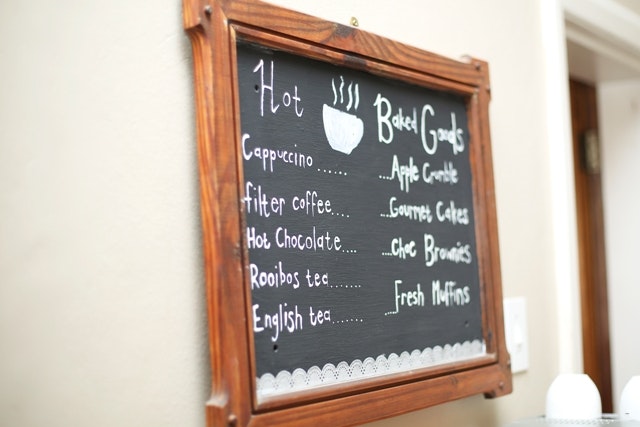 Hot Baked Goods
Cappuccino ...... ...Apple Crumble
filter coffee.... ...Gourmet Cakes
Hot Chocolate.... ...Choc Brownies
Rooibos tea....... ...Fresh Muffins
English tea.......